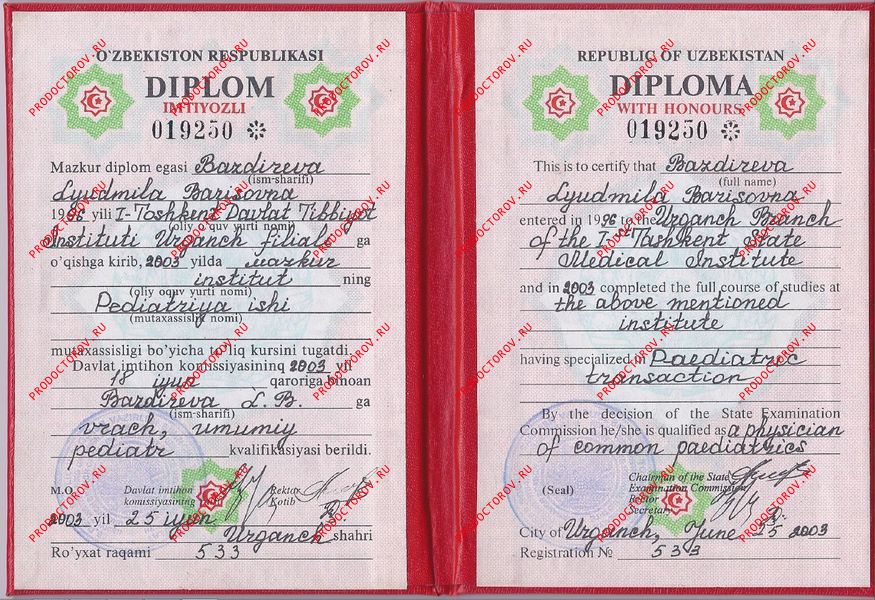 O'ZBEKISTON RESPUBLIKASI
DIPLOM
IMTIYOZLI
019250 ❊
Mazkur diplom egasi Bazdireva
(ism-sharifi)
Lyudmila Barisovna
1996 yili I-Toshkent Davlat Tibbiyot
(oliy oquv yurti nomi)
Instituti Urganch filiali ga
o'qishga kirib, 2003 yilda mazkur
institut ning
(oliy oquv yurti nomi)
Pediatriya ishi
(mutaxassislik nomi)
mutaxassisligi bo'yicha to'liq kursini tugatdi.
Davlat imtihon komissiyasining 2003 yil
18 iyun qaroriga binoan
Bazdireva L.B. ga
(ism-sharifi)
vrach, umumiy
pediatr kvalifikasiyasi berildi.
M.O. Davlat imtihon Rektor
komissiyasining raisi Kotib
2003 yil 25 iyun
Urganch shahri
Ro'yxat raqami 533
REPUBLIC OF UZBEKISTAN
DIPLOMA
WITH HONOURS
019250 ❊
This is to certify that Bazdireva
(full name)
Lyudmila Barisovna
entered in 1996 to the Urganch Branch
of the I-st Tashkent State
Medical Institute
and in 2003 completed the full course of studies at
the above mentioned
institute
having specialized in Paediatric
transaction
By the decision of the State Examination
Commission he/she is qualified as a physician
of common paediatrics
Chairman of the State
(Seal) Examination Commission
Rector
Secretary
City of Urganch, June 25 2003
Registration № 533
PRODOCTOROV.RU